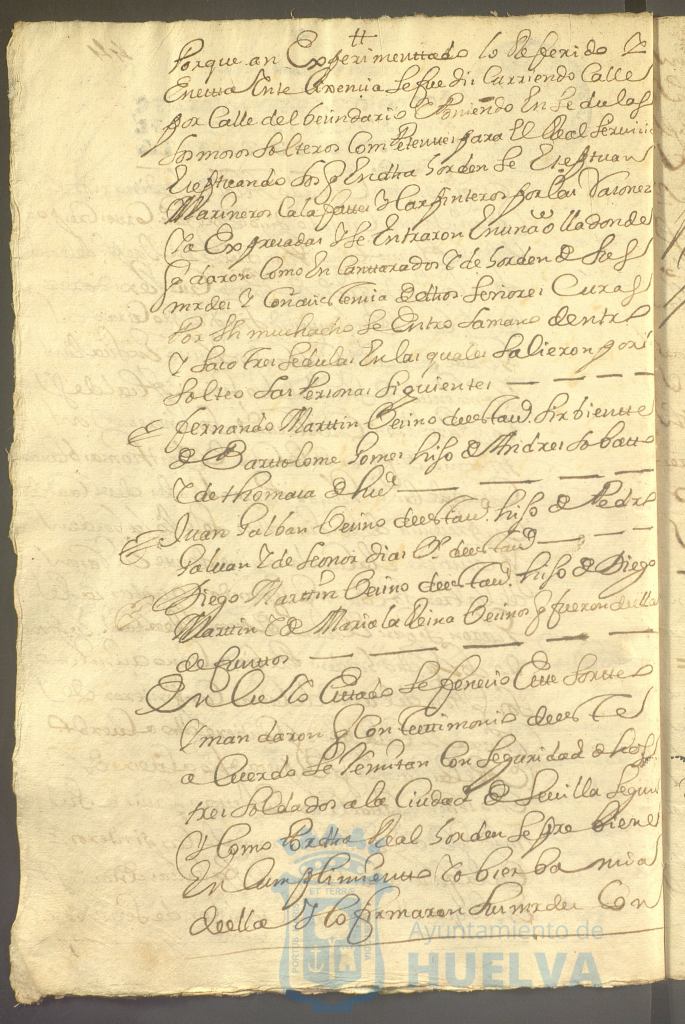 Porque an Experimenttado lo Referido Y
se fue discurriendo Calle
por Calle del becindario Poniendo En sedulas
los mosos solteros Compettentes para El Real servicio
Esseptuando los q En dha horden se Eseptuan
Marineros Calafattes Y Carpinteros por las Rasones
Ya Expresadas Y se Entraron En una olla donde
q daron como En Canttarados Y de horden de sus
mrdes Y Con asistencia de dhos señores Curas
Por Un muchacho se Entro la mano dentro
Y saco tres sedulas En las quales salieron por
sorteo las Personas siguientes
fernando Marttin Vecino de estta Vᵃ sirbientte
de Barttolome gomes hijo de Andres
Y de thomasa de
Juan galban Vecino de estta Vᵃ hijo de Pedro
galuan Y de leonor dias Vᵒˢ de estta Vᵃ
Diego Marttin Vecino de estta Vᵃ hijo de Diego
Marttin Y de Maria la Reina Vecinos q fueron de
difunttos
En Cuio Esttado se fenecio Este sorteo
Y mandaron q Con testtimonio de este
acuerdo se Remitan Con seguridad dhos
tres soldados a la Ciudad de Sevilla segun
Y Como Por dha Real horden se prebiene
En Cumplimientto Y obserbansia
de ella Y lo firmaron sus mrdes Con
PORTUS
ET TERRÆ
Ayuntamiento de
HUELVA